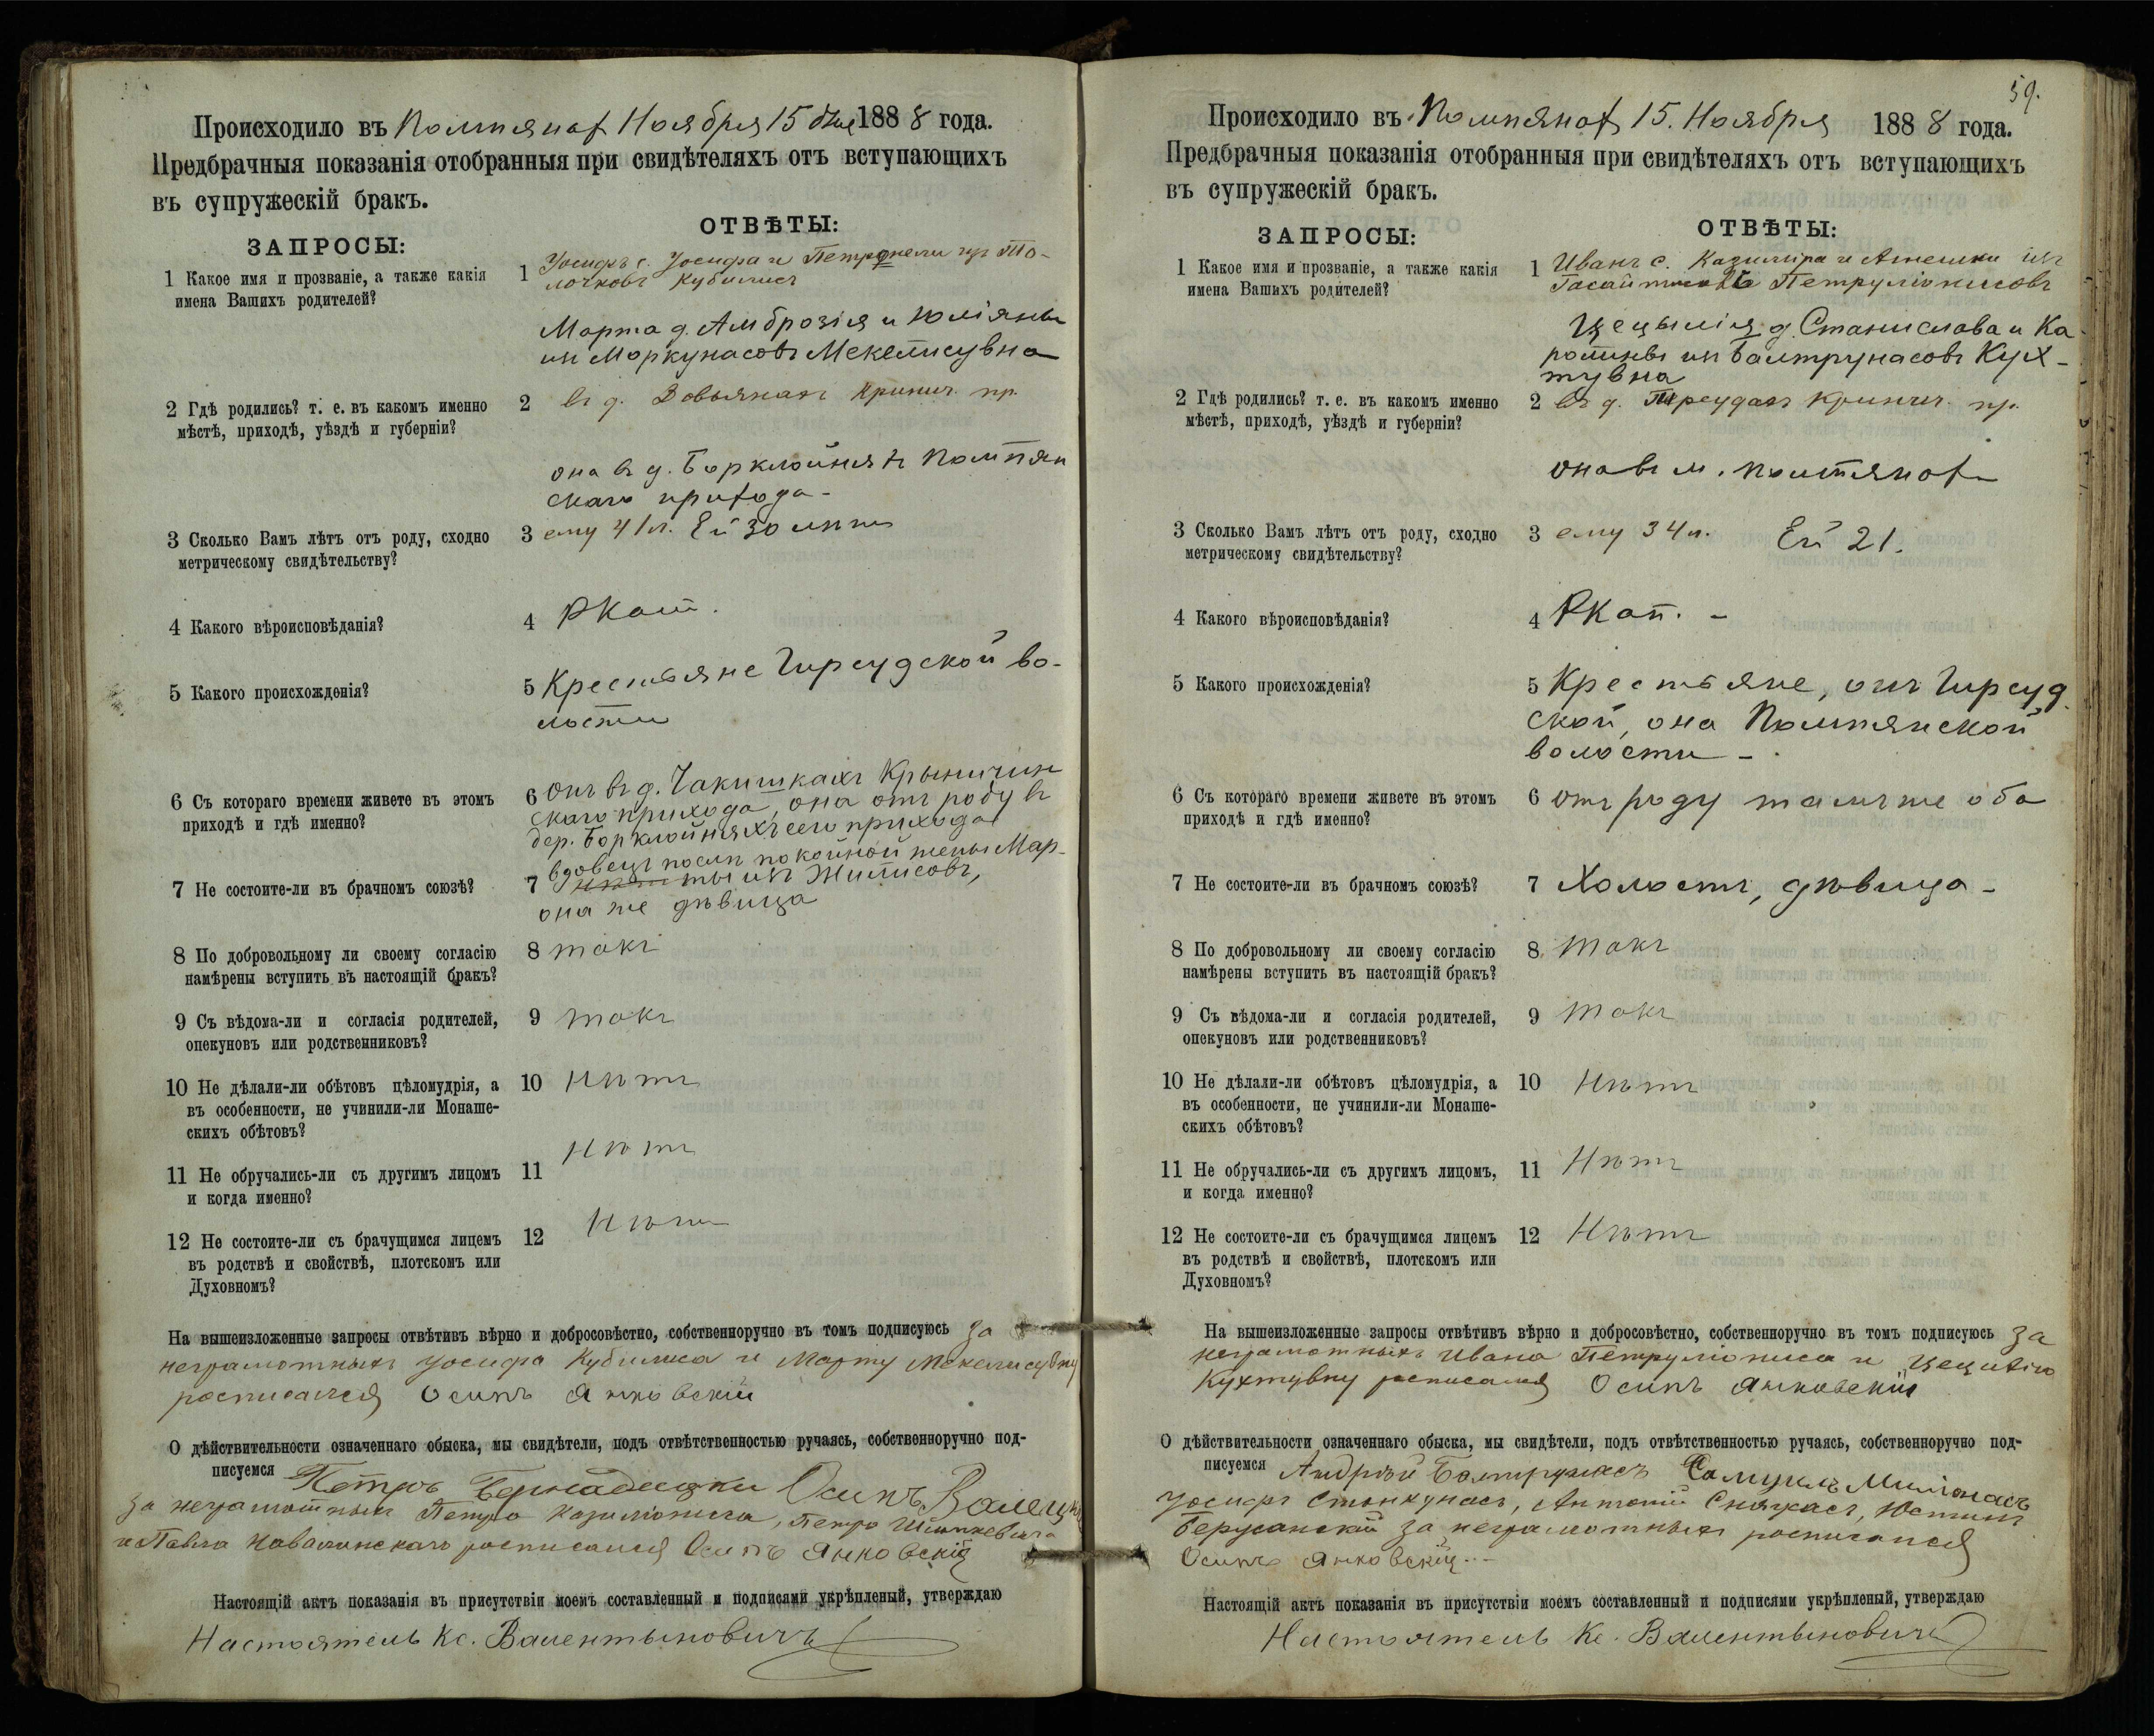 Происходило въ Помпянах Ноября 15 дня 1888 года.
Предбрачныя показанія отобранныя при свидѣтеляхъ отъ вступающихъ
въ супружескій бракъ.
ЗАПРОСЫ:
ОТВѢТЫ:
1 Какое имя и прозваніе, а также какія
имена Вашихъ родителей?
1 Іосифъ с. Іосифа и Петронели
Кубилисъ
Марта д. Амброзія и Юліяны
изъ Моркунасовъ Мекелисувна
2 Гдѣ родились? т. е. въ какомъ именно
мѣстѣ, приходѣ, уѣздѣ и губерніи?
2 въ д. Кринич. пр.
она въ д. Борклойняхъ Помпян
скаго прихода -
3 Сколько Вамъ лѣтъ отъ роду, сходно
метрическому свидѣтельству?
3 ему 41 л. Ей 30 лѣтъ
4 Какого вѣроисповѣданія?
4 РКат.
5 Какого происхожденія?
5 Крестьяне Гирсудской во-
лости
6 Съ котораго времени живете въ этомъ
приходѣ и гдѣ именно?
6 онъ въ д. Чакишкахъ Крыничин
скаго прихода, она отъ роду въ
дер. Борклойняхъ сего прихода
7 Не состоите-ли въ брачномъ союзѣ?
вдовецъ послѣ покойной жены Мар-
7 ты изъ Жилисовъ,
она же дѣвица
8 По добровольному ли своему согласію
намѣрены вступить въ настоящій бракъ?
8 такъ
9 Съ вѣдома-ли и согласія родителей,
опекуновъ или родственниковъ?
9 такъ
10 Не дѣлали-ли обѣтовъ цѣломудрія, а
въ особенности, не учинили-ли Монаше-
скихъ обѣтовъ?
10 Нѣтъ
11 Не обручались-ли съ другимъ лицомъ
и когда именно?
11 Нѣтъ
12 Не состоите-ли съ брачущимся лицемъ
въ родствѣ и свойствѣ, плотскомъ или
Духовномъ?
12 Нѣтъ
На вышеизложенные запросы отвѣтивъ вѣрно и добросовѣстно, собственноручно въ томъ подписуюсь за
неграмотныхъ Іосифа Кубилиса и Марту Мекелисувну
росписался Осипъ Янковскій
О дѣйствительности означеннаго обыска, мы свидѣтели, подъ отвѣтственностью ручаясь, собственноручно под-
писуемся Петръ Осипъ
за неграмотныхъ Петра Казилюниса, Петра
и Павла росписался Осипъ Янковскій
Настоящій актъ показанія въ присутствіи моемъ составленный и подписями укрѣпленый, утверждаю
Настоятель Кс. Валентыновичъ
59.
Происходило въ Помпянах 15. Ноября 1888 года.
Предбрачныя показанія отобранныя при свидѣтеляхъ отъ вступающихъ
въ супружескій бракъ.
ЗАПРОСЫ:
ОТВѢТЫ:
1 Какое имя и прозваніе, а также какія
имена Вашихъ родителей?
1 Иванъ с. Казиміра и Агнешки изъ
Петрулёнисовъ
Цецылія д. Станислава и Ка
ролины изъ Балтрунасовъ Кух-
тувна
2 Гдѣ родились? т. е. въ какомъ именно
мѣстѣ, приходѣ, уѣздѣ и губерніи?
2 въ д. Кринич. пр.
она въ м. Помпянах
3 Сколько Вамъ лѣтъ отъ роду, сходно
метрическому свидѣтельству?
3 ему 34 л. Ей 21.
4 Какого вѣроисповѣданія?
4 РКат. -
5 Какого происхожденія?
5 Крестьяне, онъ Гирсуд
ской, она Помпянской
волости -
6 Съ котораго времени живете въ этомъ
приходѣ и гдѣ именно?
6 отъ роду тамъ же оба
7 Не состоите-ли въ брачномъ союзѣ?
7 Холостъ, дѣвица -
8 По добровольному ли своему согласію
намѣрены вступить въ настоящій бракъ?
8 такъ
9 Съ вѣдома-ли и согласія родителей,
опекуновъ или родственниковъ?
9 такъ
10 Не дѣлали-ли обѣтовъ цѣломудрія, а
въ особенности, не учинили-ли Монаше-
скихъ обѣтовъ?
10 Нѣтъ
11 Не обручались-ли съ другимъ лицомъ,
и когда именно?
11 Нѣтъ
12 Не состоите-ли съ брачущимся лицемъ
въ родствѣ и свойствѣ, плотскомъ или
Духовномъ?
12 Нѣтъ
На вышеизложенные запросы отвѣтивъ вѣрно и добросовѣстно, собственноручно въ томъ подписуюсь за
неграмотныхъ Ивана Петрулёниса и Цецилію
Кухтувну росписался Осипъ Янковскій
О дѣйствительности означеннаго обыска, мы свидѣтели, подъ отвѣтственностью ручаясь, собственноручно под-
писуемся Андрей Балтрунасъ
Іосифъ Станкунасъ, Антоній Юстинъ
за неграмотныхъ росписался
Осипъ Янковскій. -
Настоящій актъ показанія въ присутствіи моемъ составленный и подписями укрѣпленый, утверждаю
Настоятель Кс. Валентыновичъ